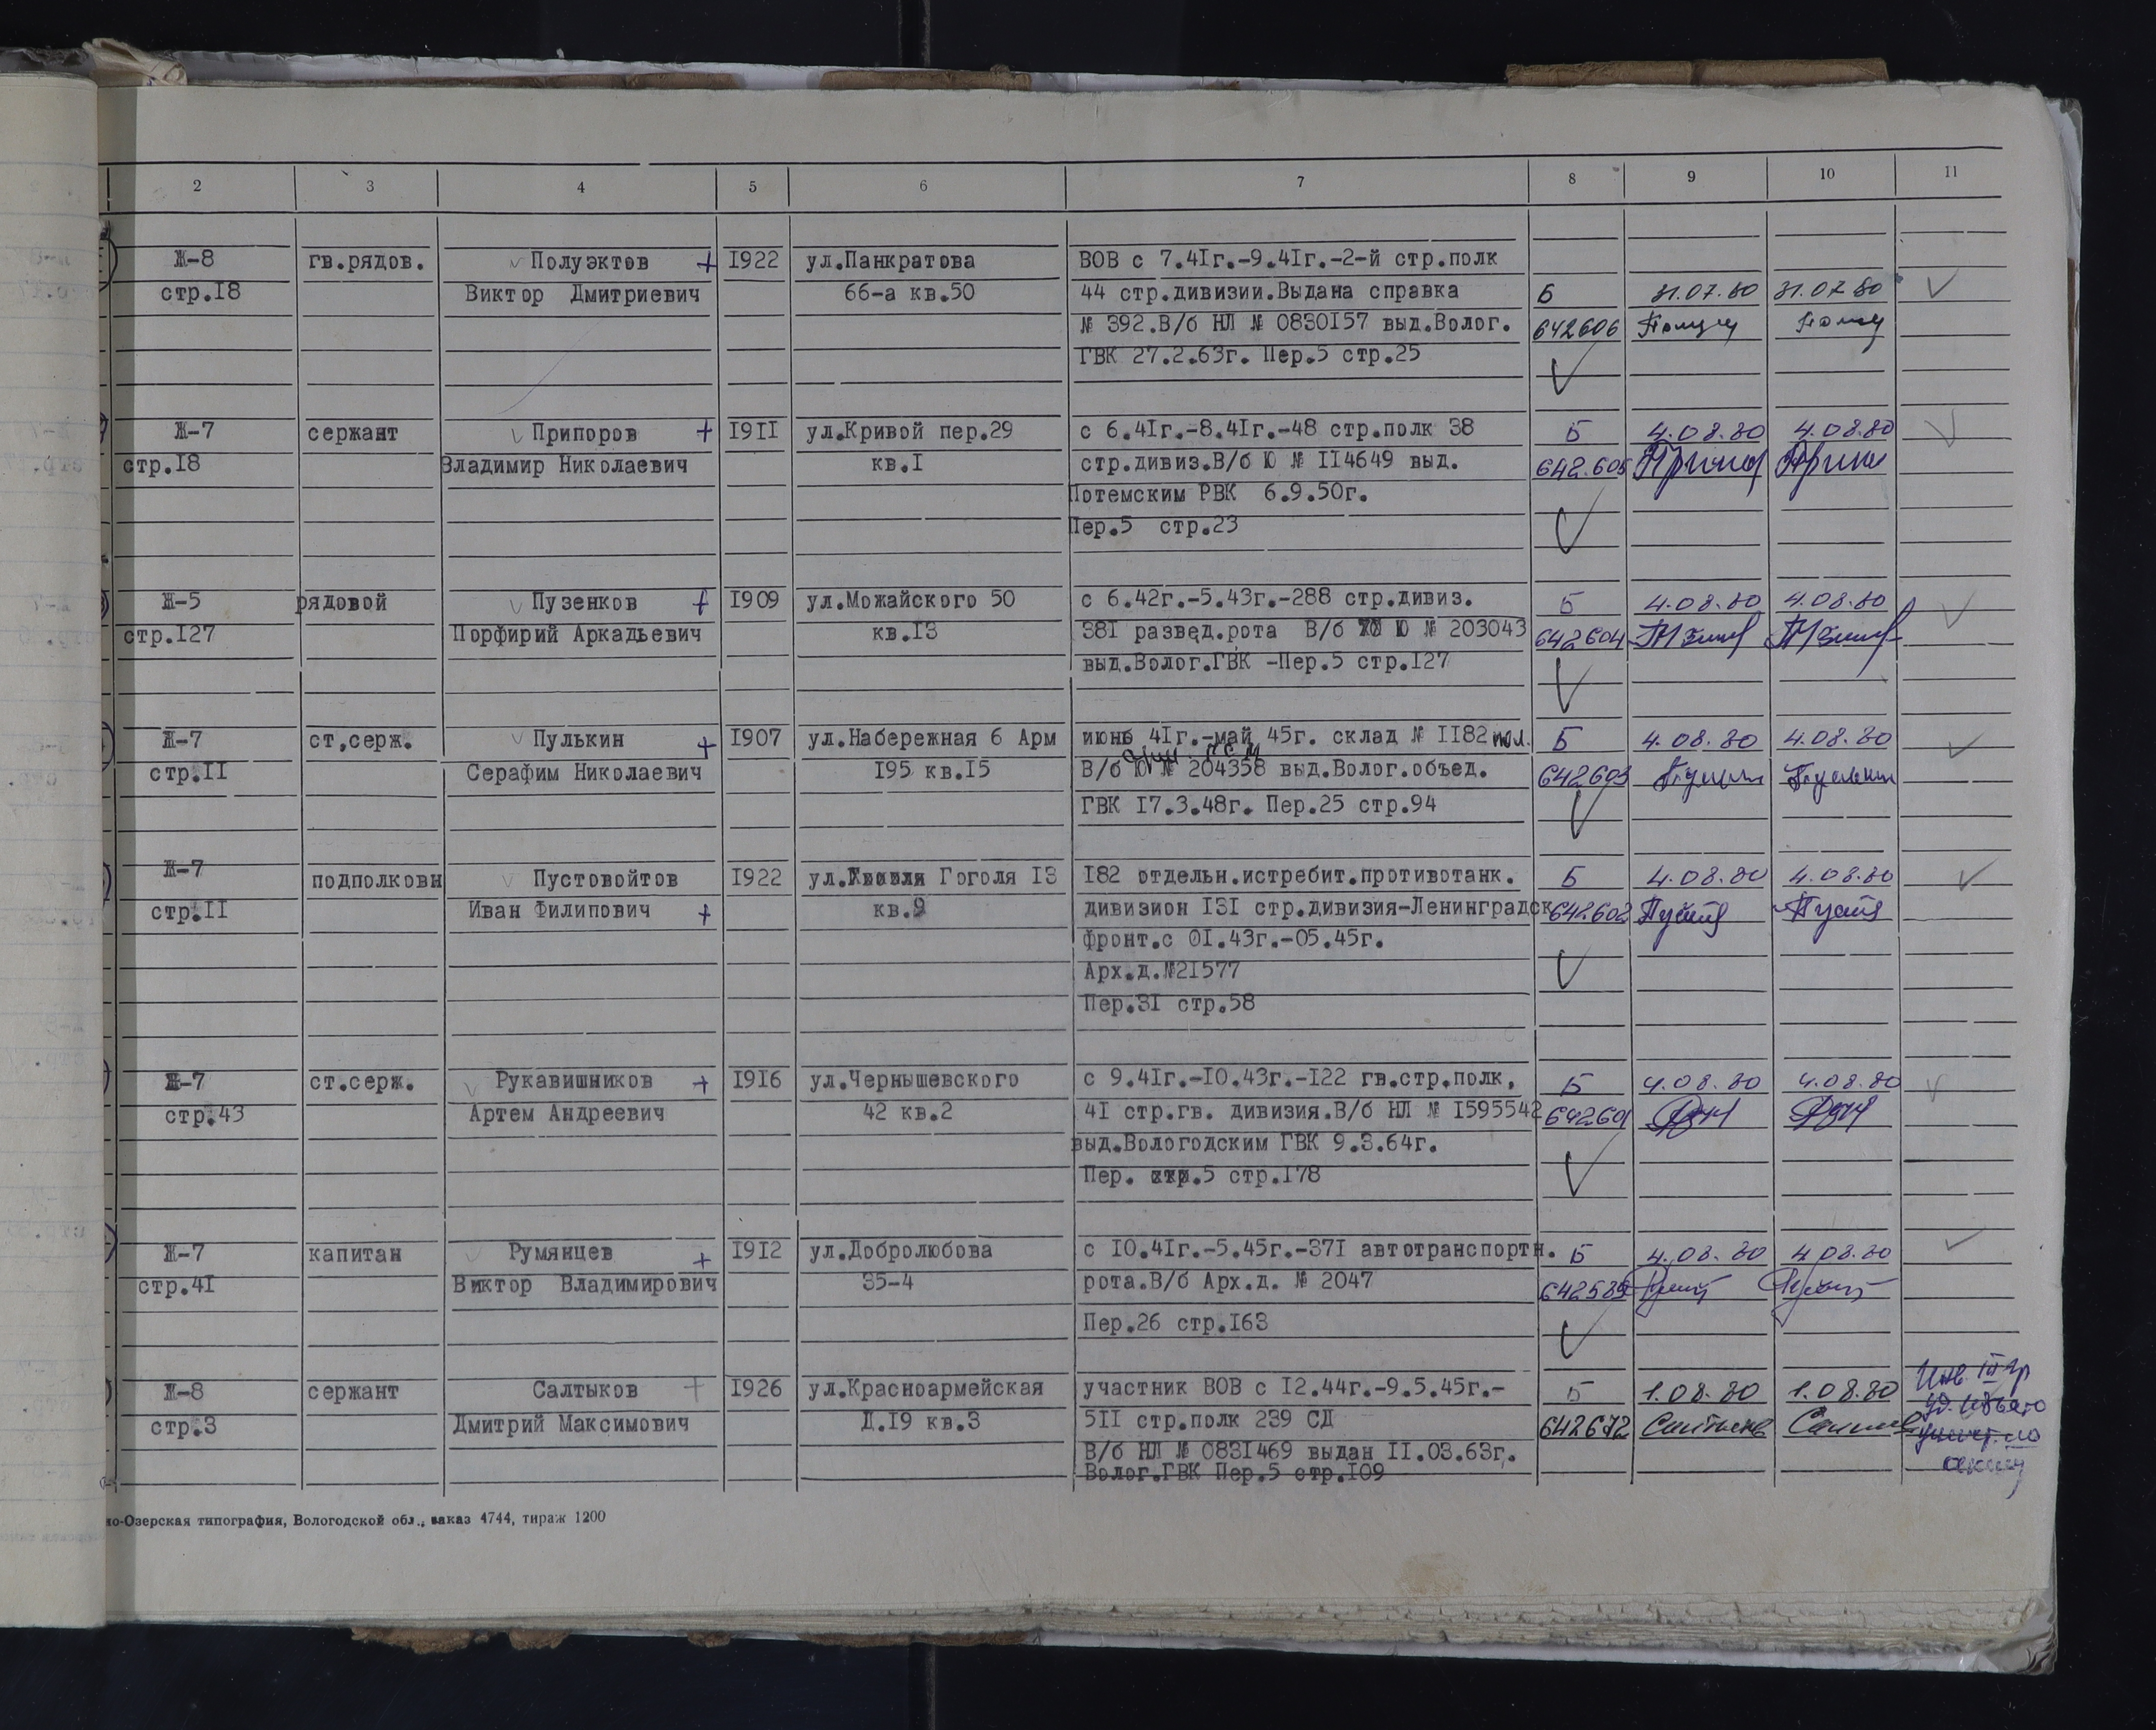 2 3 4 5 6 7 8 9 10 11
Ж-8 гв.рядов. Полуэктов + 1922 ул.Панкратова ВОВ с 7.41г.-9.41г.-2-й стр.полк
стр.18 Виктор Дмитриевич 66-а кв.50 44 стр.дивизии.Выдана справка Б 31.07.80 31.07.80
№ 392.В/б НЛ № 0830157 выд.Волог. 642606
ГВК 27.2.63г. Пер.5 стр.25
Ж-7 сержант Припоров + 1911 ул.Кривой пер.29 с 6.41г.-8.41г.-48 стр.полк 38 Б 4.08.80 4.08.80
стр.18 Владимир Николаевич кв.1 стр.дивиз.В/б Ю № 114649 выд. 642.605
Потемским РВК 6.9.50г.
Пер.5 стр.23
Ж-5 рядовой Пузенков + 1909 ул.Можайского 50 с 6.42г.-5.43г.-288 стр.дивиз. Б 4.08.80 4.08.80
стр.127 Порфирий Аркадьевич кв.13 381 развед.рота В/б Ю № 203043 642604
выд.Волог.ГВК -Пер.5 стр.127
Ж-7 ст,серж. Пулькин + 1907 ул.Набережная 6 Арм июнь 41г.-май 45г. склад № 1182 пол. Б 4.08.80 4.08.80
стр.11 Серафим Николаевич 195 кв.15 В/б Ю № 204358 выд.Волог.объед. 642603
ГВК 17.3.48г. Пер.25 стр.94
Ж-7 подполковн Пустовойтов 1922 ул. Гоголя 13 182 отдельн.истребит.противотанк. Б 4.08.80 4.08.80
стр.11 Иван Филипович + кв.9 дивизион 131 стр.дивизия-Ленинградск 642.602
фронт.с 01.43г.-05.45г.
Арх.д.№21577
Пер.31 стр.58
Ж-7 ст.серж. Рукавишников + 1916 ул.Чернышевского с 9.41г.-10.43г.-122 гв.стр.полк, Б 4.08.80 4.08.80
стр.43 Артем Андреевич 42 кв.2 41 стр.гв. дивизия.В/б НЛ № 1595542 642601
выд.Вологодским ГВК 9.3.64г.
Пер. стр.5 стр.178
Ж-7 капитан Румянцев + 1912 ул.Добролюбова с 10.41г.-5.45г.-371 автотранспортн. Б 4.08.80 4.08.80
стр.41 Виктор Владимирович 35-4 рота.В/б Арх.д. № 2047 642589
Пер.26 стр.163
Ж-8 сержант Салтыков + 1926 ул.Красноармейская участник ВОВ с 12.44г.-9.5.45г.- Б 1.08.80 1.08.80 Инв. III гр
стр.3 Дмитрий Максимович Д.19 кв.3 511 стр.полк 239 СД 642672 уд. изъято
В/б НЛ № 0831469 выдан 11.03.63г.
Волог.ГВК Пер.5 стр.109
но-Озерская типография, Вологодской обл., заказ 4744, тираж 1200